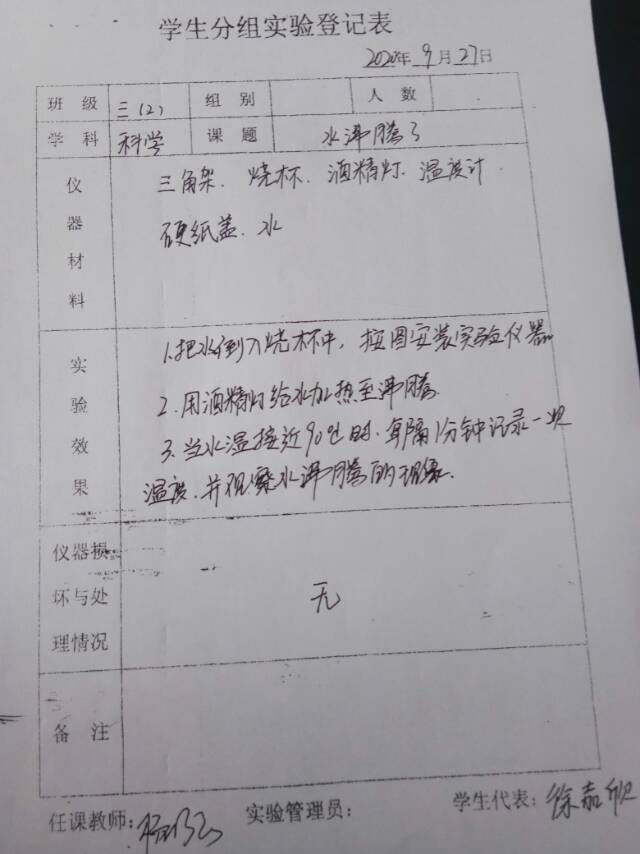 学生分组实验登记表
2020年9月27日
班级 三(2) 组别 人数
学科 科学 课题 水沸腾了
仪器材料 三角架、烧杯、酒精灯、温度计
硬纸盖、水
实验效果 1.把水倒入烧杯中，按图安装实验仪器
2.用酒精灯给水加热至沸腾.
3.当水温接近90℃时,每隔1分钟记录一次
温度,并观察水沸腾的现象.
仪器损坏与处理情况 无
备注
任课教师: 实验管理员: 学生代表: 徐嘉欣